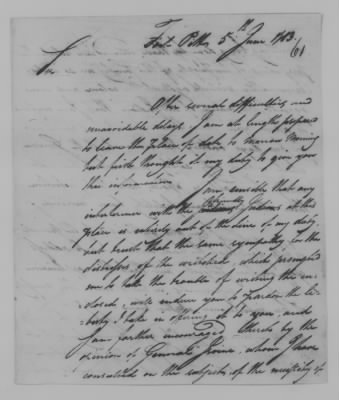 Fort Pitt 5th June 1783
61
Sir
After several difficulties and
unavoidable delays I am at length prepared
to leave this place to morrow morning
but first thought it my duty to give you
this information.
I am sensible that any
interference with the friendly Indians at this
place is entirely out of the line of my duty,
but trust that the same sympathy for the
distresses of the wretched, which prompted
me to take the trouble of writing the in-
closed, will induce you to pardon the li-
berty I take in offering it to you, and
I am farther encouraged thereto by the
opinion of General Irvine, whom I have
consulted on the subject, of the necessity of